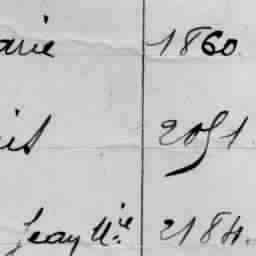 arie 1860.
is 2051.
Jean M.ie 2184.